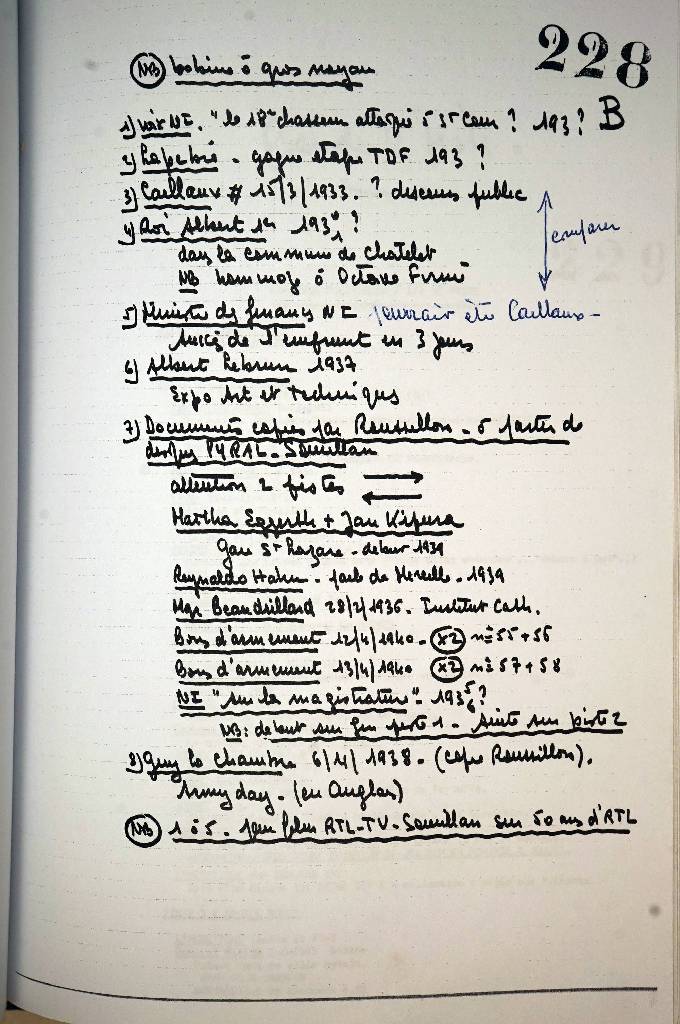 228
B
NB bobine à gros noyau
1) voir NI. "le 18e chasseur attaque à 5h ? 193?
2) Lapébie - gagne étape TDF 193 ?
3) Caillaux # 15/3/1933. ? discours public
4) Roi Albert 1er 193 0/1 ?
dans la commune de Chatelet
NB hommage à Octave
comparer
5) Ministre des finances NI pourrait être Caillaux -
succès de l'emprunt en 3 jours
6) Albert Lebrun 1937
Expo Art et techniques
7) Documents copiés par Roussillon - à partir de
disques PYRAL - Souillan
attention 2 pistes
Martha Eggerth + Jan Kipura
Gare St Lazare - début 1939
Reynaldo Hahn - parle de Mireille - 1939
Mgr Beaudrillard 28/2/1936. Institut Cath.
Bons d'armement 12/4/1940 - (x2) n°s 55 + 56
Bons d'armement 13/4/1940 (x2) n°s 57 + 58
NI "sur la magistrature" - 193 5/6 ?
NB: début sur fin piste 1 - suite sur piste 2
8) Guy la chambre 6/4/1938 - (copie Roussillon).
Army day - (en Anglais)
NB 1 à 5 - pour film RTL-TV - Souillan sur 50 ans d'RTL